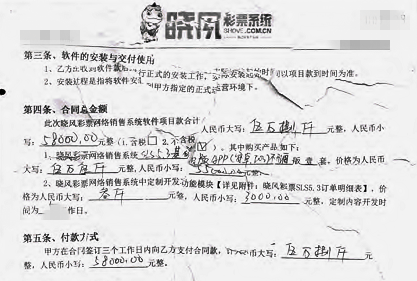 晓风彩票系统
SHOVE.COM.CN
第三条、软件的安装与交付使用
1、乙方在收到软件款后 行正式的安装工作, 安装 的时间以项目款到时间为准。
2、安装过程是指将软件安 到甲方指定的正式运营环境下。
第四条、合同总金额
此次晓风彩票网络销售系统软件项目款合计 人民币大写: 伍万捌仟 元整, 人民币小
写: 58000.00 元整(1.含税 □ 2.不含税 )。其中购买产品如下:
1、晓风彩票网络销售系统SLS5.3 版APP 壹套, 价格为人民币
大写: 伍万伍仟 元整, 人民币小写: 55000.00 元整。
2、晓风彩票网络销售系统中定制开发功能模块【详见附件: 晓风彩票SLS5.3订单明细表】, 价
格为人民币大写: 叁仟 元整, 人民币小写: 3000.00 元整, 定制内容开发时
间为 作日。
第五条、付款方式
甲方在合同签订三个工作日内向乙方支付合同款, 币大写: 伍万捌仟 元
整, 人民币小写: 58000.00 元整。